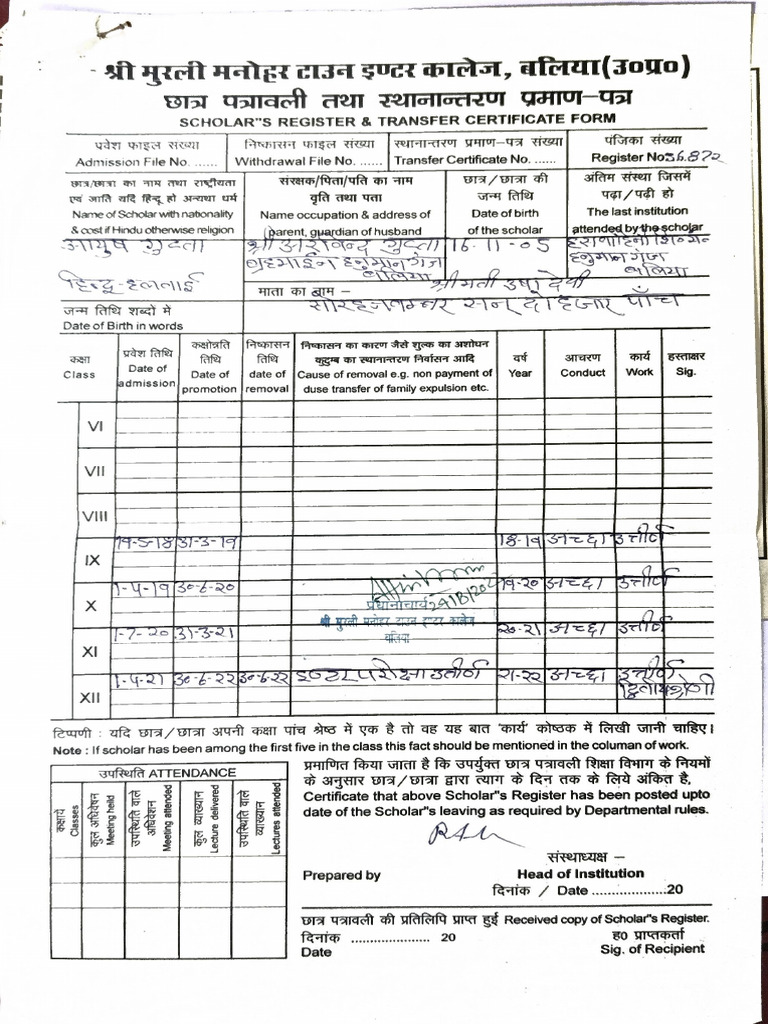 श्री मुरली मनोहर टाउन इण्टर कालेज, बलिया(उ०प्र०)
छात्र पत्रावली तथा स्थानान्तरण प्रमाण-पत्र
SCHOLAR"S REGISTER & TRANSFER CERTIFICATE FORM
प्रवेश फाइल संख्या
Admission File No. ......
निष्कासन फाइल संख्या
Withdrawal File No. ......
स्थानान्तरण प्रमाण-पत्र संख्या
Transfer Certificate No. ......
पंजिका संख्या
Register No 36.872
छात्र/छात्रा का नाम तथा राष्ट्रीयता
एवं जाति यदि हिन्दू हो अन्यथा धर्म
Name of Scholar with nationality
& cost if Hindu otherwise religion
संरक्षक/पिता/पति का नाम
वृति तथा पता
Name occupation & address of
parent, guardian of husband
छात्र/छात्रा की
जन्म तिथि
Date of birth
of the scholar
अंतिम संस्था जिसमें
पढ़ा/पढ़ी हो
The last institution
attended by the scholar
आयुष गुप्ता
हिन्दू-हलवाई
श्री अरविन्द गुप्ता
हनुमानगंज
बलिया
16-11-05
हनुमानगंज
बलिया
माता का नाम - श्रीमती उषा देवी
जन्म तिथि शब्दो में
Date of Birth in words
सोलह नवम्बर सन् दो हजार पाँच
कक्षा
Class
प्रवेश तिथि
Date of
admission
कक्षोन्नति
तिथि
Date of
promotion
निष्कासन
तिथि
date of
removal
निष्कासन का कारण जैसे शुल्क का अशोधन
कुटुम्ब का स्थानान्तरण निर्वासन आदि
Cause of removal e.g. non payment of
duse transfer of family expulsion etc.
वर्ष
Year
आचरण
Conduct
कार्य
Work
हस्ताक्षर
Sig.
VI
VII
VIII
IX 19-5-18 31-3-19 18-19 अच्छा उत्तीर्ण
X 1-4-19 30-6-20 19-20 अच्छा उत्तीर्ण
प्रधानाचार्य
श्री मुरली मनोहर टाउन इण्टर कालेज
बलिया
XI 1-7-20 31-3-21 20-21 अच्छा उत्तीर्ण
XII 1-4-21 30-6-22 30-6-22 इण्टर परीक्षा उत्तीर्ण 21-22 अच्छा उत्तीर्ण
द्वितीय श्रेणी
टिप्पणी : यदि छात्र/छात्रा अपनी कक्षा पांच श्रेष्ठ में एक है तो वह यह बात 'कार्य' कोष्ठक में लिखी जानी चाहिए।
Note : If scholar has been among the first five in the class this fact should be mentioned in the columan of work.
उपस्थिति ATTENDANCE
कक्षायें
Classes
कुल अधिवेशन
Meeting held
उपस्थिति वाले
अधिवेशन
Meeting attended
कुल व्याख्यान
Lecture delivered
उपस्थिति वाले
व्याख्यान
Lectures attended
प्रमाणित किया जाता है कि उपर्युक्त छात्र पत्रावली शिक्षा विभाग के नियमों
के अनुसार छात्र/छात्रा द्वारा त्याग के दिन तक के लिये अंकित है,
Certificate that above Scholar"s Register has been posted upto
date of the Scholar"s leaving as required by Departmental rules.
संस्थाध्यक्ष –
Prepared by
Head of Institution
दिनांक / Date ...................20
छात्र पत्रावली की प्रतिलिपि प्राप्त हुई Received copy of Scholar"s Register.
दिनांक .................... 20
Date
ह० प्राप्तकर्ता
Sig. of Recipient